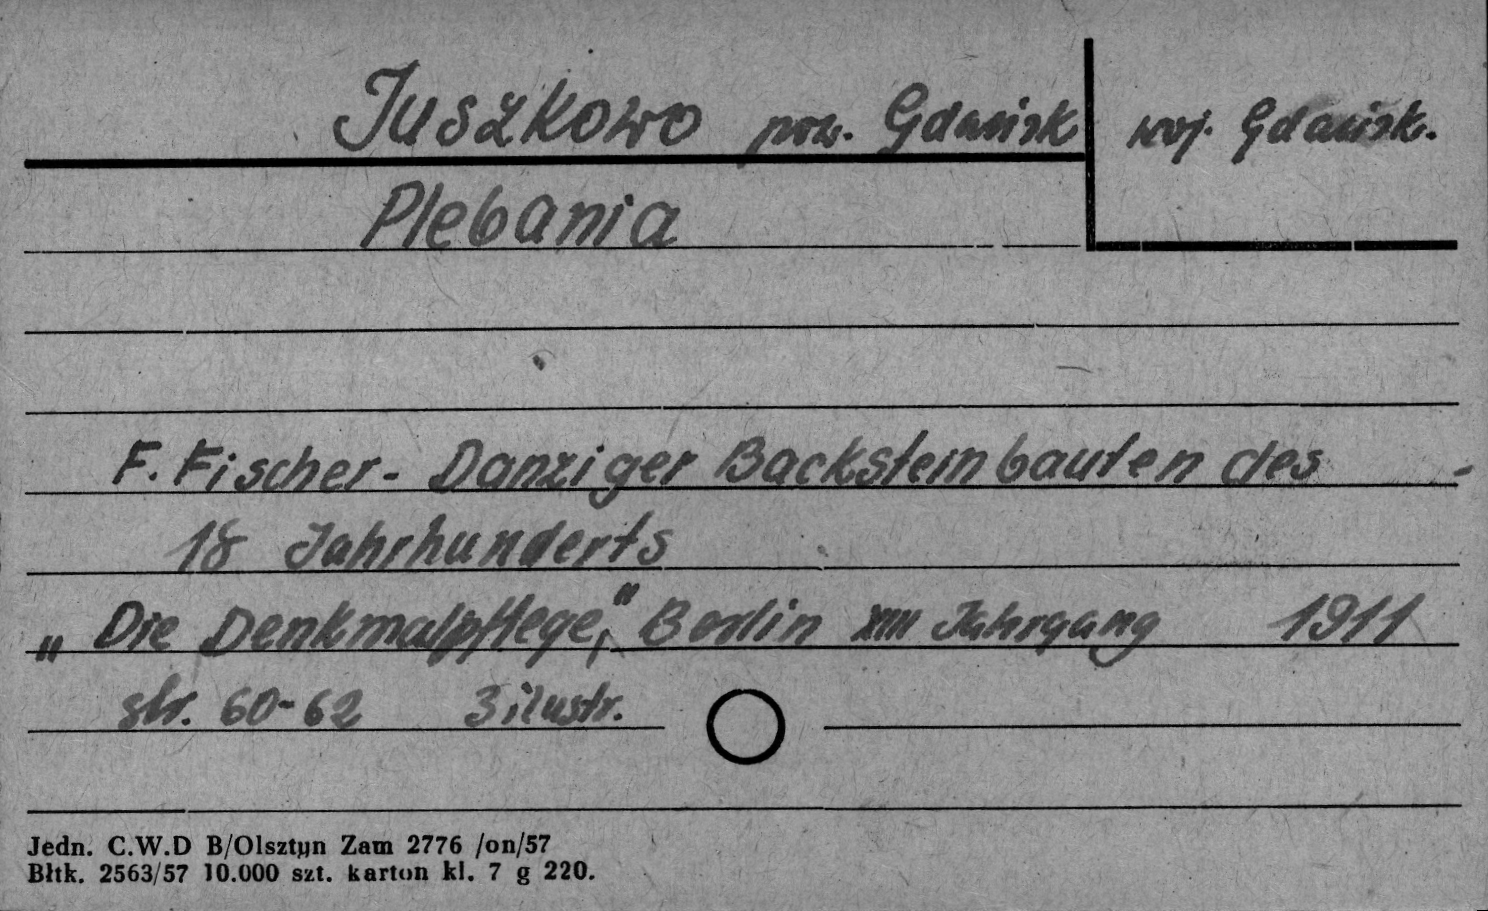 Juszkowo pow. Gdańsk woj. Gdańsk.
Plebania
F. Fischer - Danziger Backsteinbauten des -
18 Jahrhunderts
„Die Denkmalpflege," Berlin XIII Jahrgang 1911
str. 60-62 3 ilustr.
Jedn. C.W.D B/Olsztyn Zam 2776 /on/57
Błtk. 2563/57 10.000 szt. karton kl. 7 g 220.